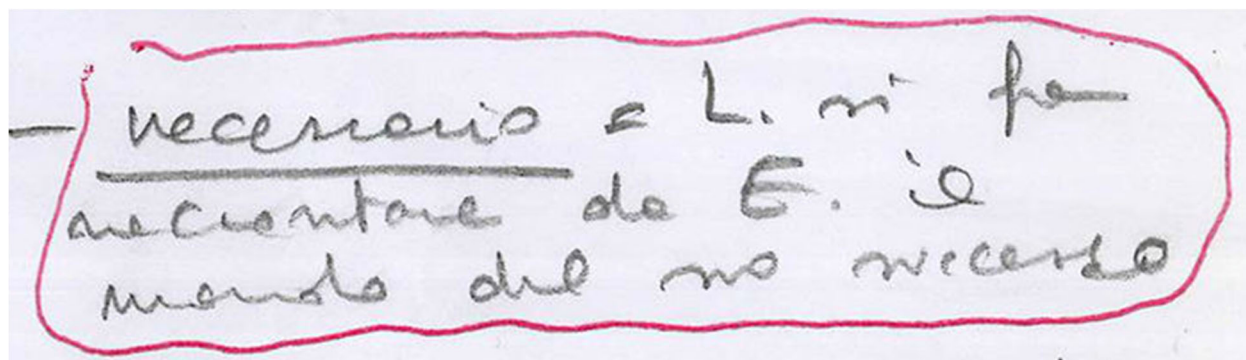 — necessario = L. si fa
raccontare da E. il
mondo del suo successo